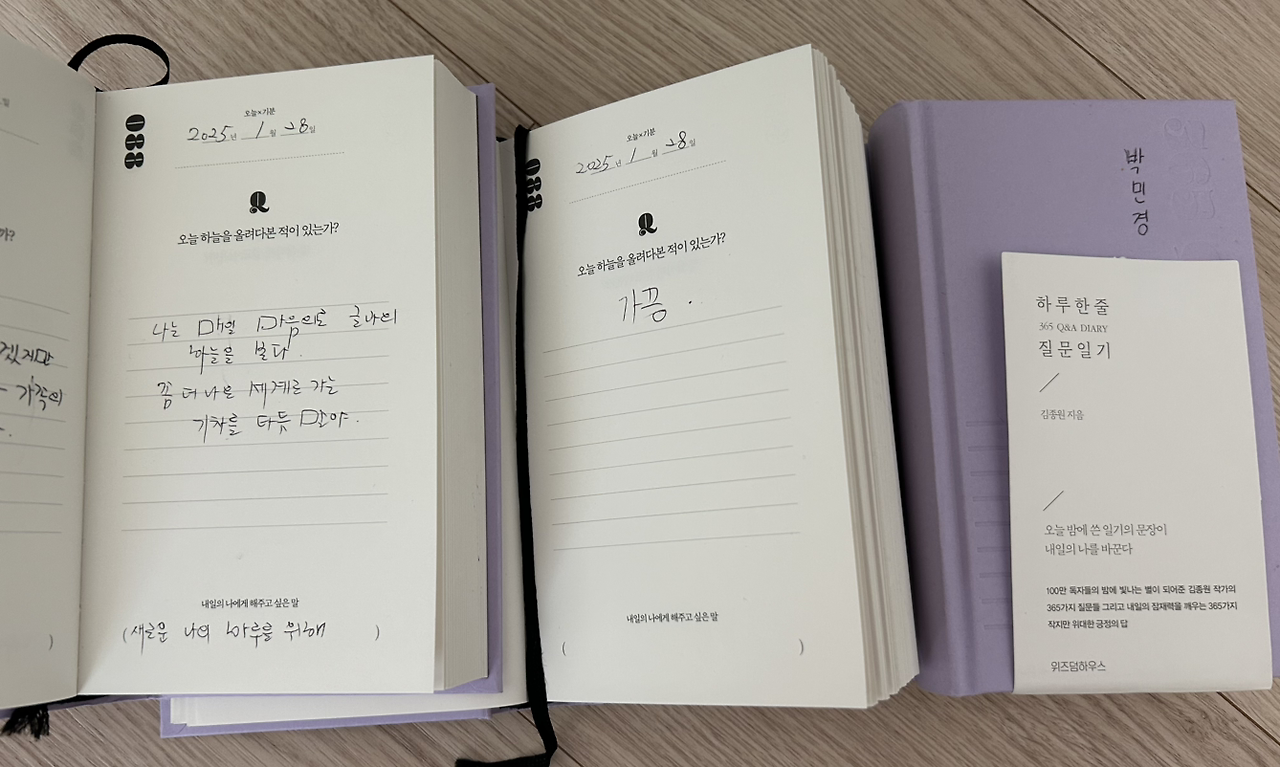 가?
겠지만
가족의
088
오늘×기분
2025년 1월 28일
Q
오늘 하늘을 올려다본 적이 있는가?
나는 매일 마음의로
하늘을 보다.
꿈 더 나은 세계로 가는
기차를 타듯 말야.
내일의 나에게 해주고 싶은 말
(새로운 나의 하루를 위해 )
088
오늘×기분
2025년 1월 28일
Q
오늘 하늘을 올려다본 적이 있는가?
가끔.
내일의 나에게 해주고 싶은 말
( )
박민경
하루한줄
365 Q&A DIARY
질문일기
김종원 지음
오늘 밤에 쓴 일기의 문장이
내일의 나를 바꾼다
100만 독자들의 밤에 빛나는 별이 되어준 김종원 작가의
365가지 질문들 그리고 내일의 잠재력을 깨우는 365가지
작지만 위대한 긍정의 답
위즈덤하우스